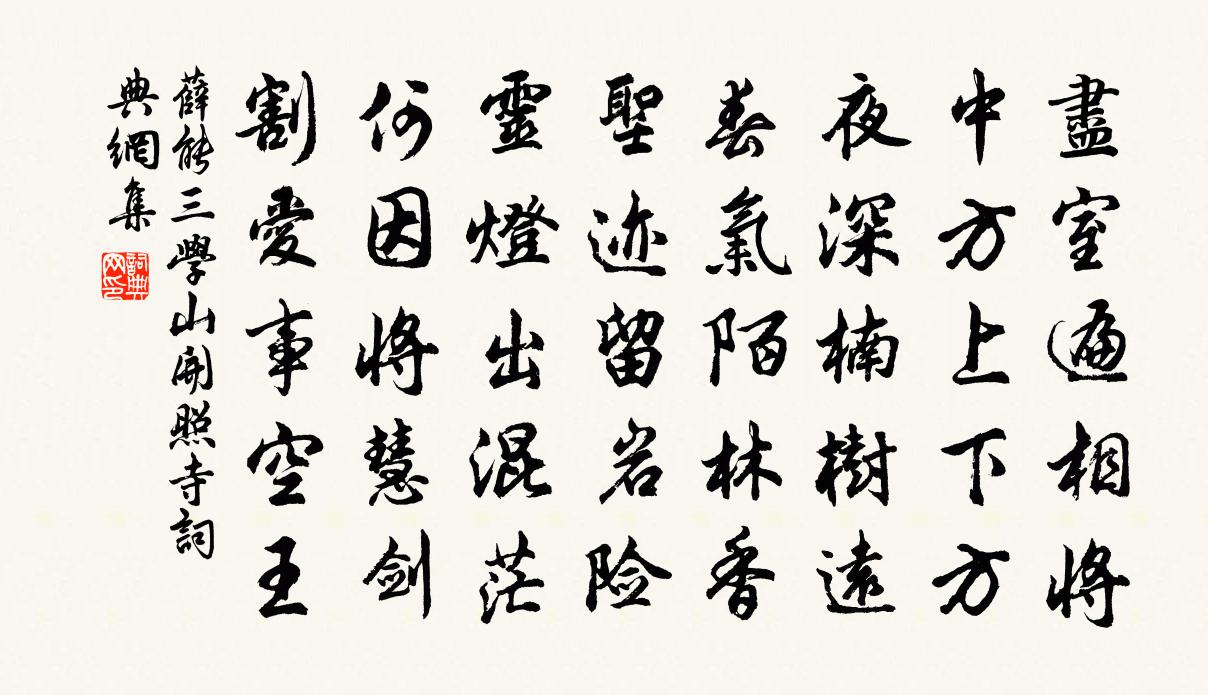 盡室遍相將
中方上下方
夜深楠樹遠
春氣陌林香
聖迹留岩险
靈燈出混茫
何因將慧剑
割愛事空王
薛能三學山開照寺詞
典網集
詞典
网印